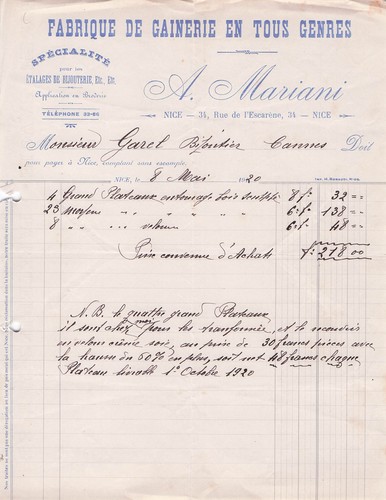 FABRIQUE DE GAINERIE EN TOUS GENRES
SPÉCIALITÉ
pour les
ÉTALAGES DE BIJOUTERIE, Etc., Etc.
Application en Broderie
TÉLÉPHONE 32-60
A. Mariani
NICE — 34, Rue de l'Escarène, 34 — NICE
Monsieur Garel Bijoutier Cannes Doit
pour payer à Nice, comptant sans escompte.
NICE, le 8 Mai 1920
4 Grand Plateaux entourage bois sculpté 8 f. 32
23 Moyens " " " " 6 f. 138
8 " " " velours 6 f. 48
Prix convenu d'Achat f. 218 00
N.B. le quattre grand Plateaux
il sont chez moi pour les transformée, et le
en velours crème soie, au prix de 30 francs pièces avec
la hausse du 60% en plus, soit net 48 francs chaque
Plateau livrable 1° Octobre 1920